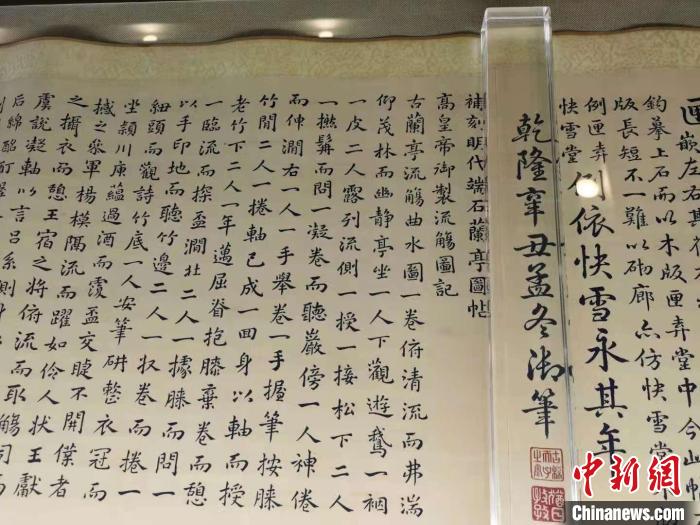 匣嵌左右其
鈎摹上石而以木版匣弆堂中今山帖
版長短不一難以砌廊亦仿快雪堂
例匣弆
快雪堂
例依快雪永其年
乾隆辛丑孟冬御筆
補刻明代端石蘭亭圖帖
高皇帝御製流觴圖記
古蘭亭流觴曲水圖一卷俯清流而弗湍
仰茂林而幽靜亭坐一人下觀遊鵞一裀
一皮二人露列流側一授一接松下二人
一撚髯而問一凝卷而聽巖傍一人神倦
而伸澗右一人一手舉卷一手握筆按膝
竹間二人一捲軸已成一回身以軸而授
老竹下二人一年邁屈脊抱膝棄卷而憩
一臨流而探盃澗壯二人一據膝而問一
以手印地而聽竹邊二人一収卷而捲一
細頭而觀詩竹底一人安筆硏整衣冠而
坐潁川庾蘊過酒而覆盃交睫不開僕者
撼之叅軍楊模隔流而躍如伶人狀王獻
之攝衣而憩王宿之將俯流而取觴司
虞說凝軸以言呂系則
后綿酩酊
中新网
Chinanews.com